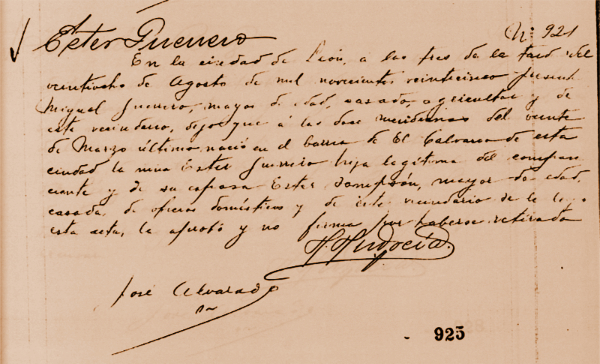 Ester Guerrero
Nº 921
En la ciudad de León, a las tres de la tard del
veintiocho de Agosto de mil novecientos veinticinco
Miguel Guerrero, mayor de edad, casado, agricultor y de
este vecindario, dijo: que á las doce meridianas del veinte
de Marzo último, nació en el barrio de El Calvario de esta
ciudad la niña Ester Guerrero hija legítima del compare
ciente y de su esposa Ester mayor de edad,
casada, de oficios domésticos y de este vecindario se le leyó
esta acta, la aprobó y no firma por haberse retirado
José Alvarado
925